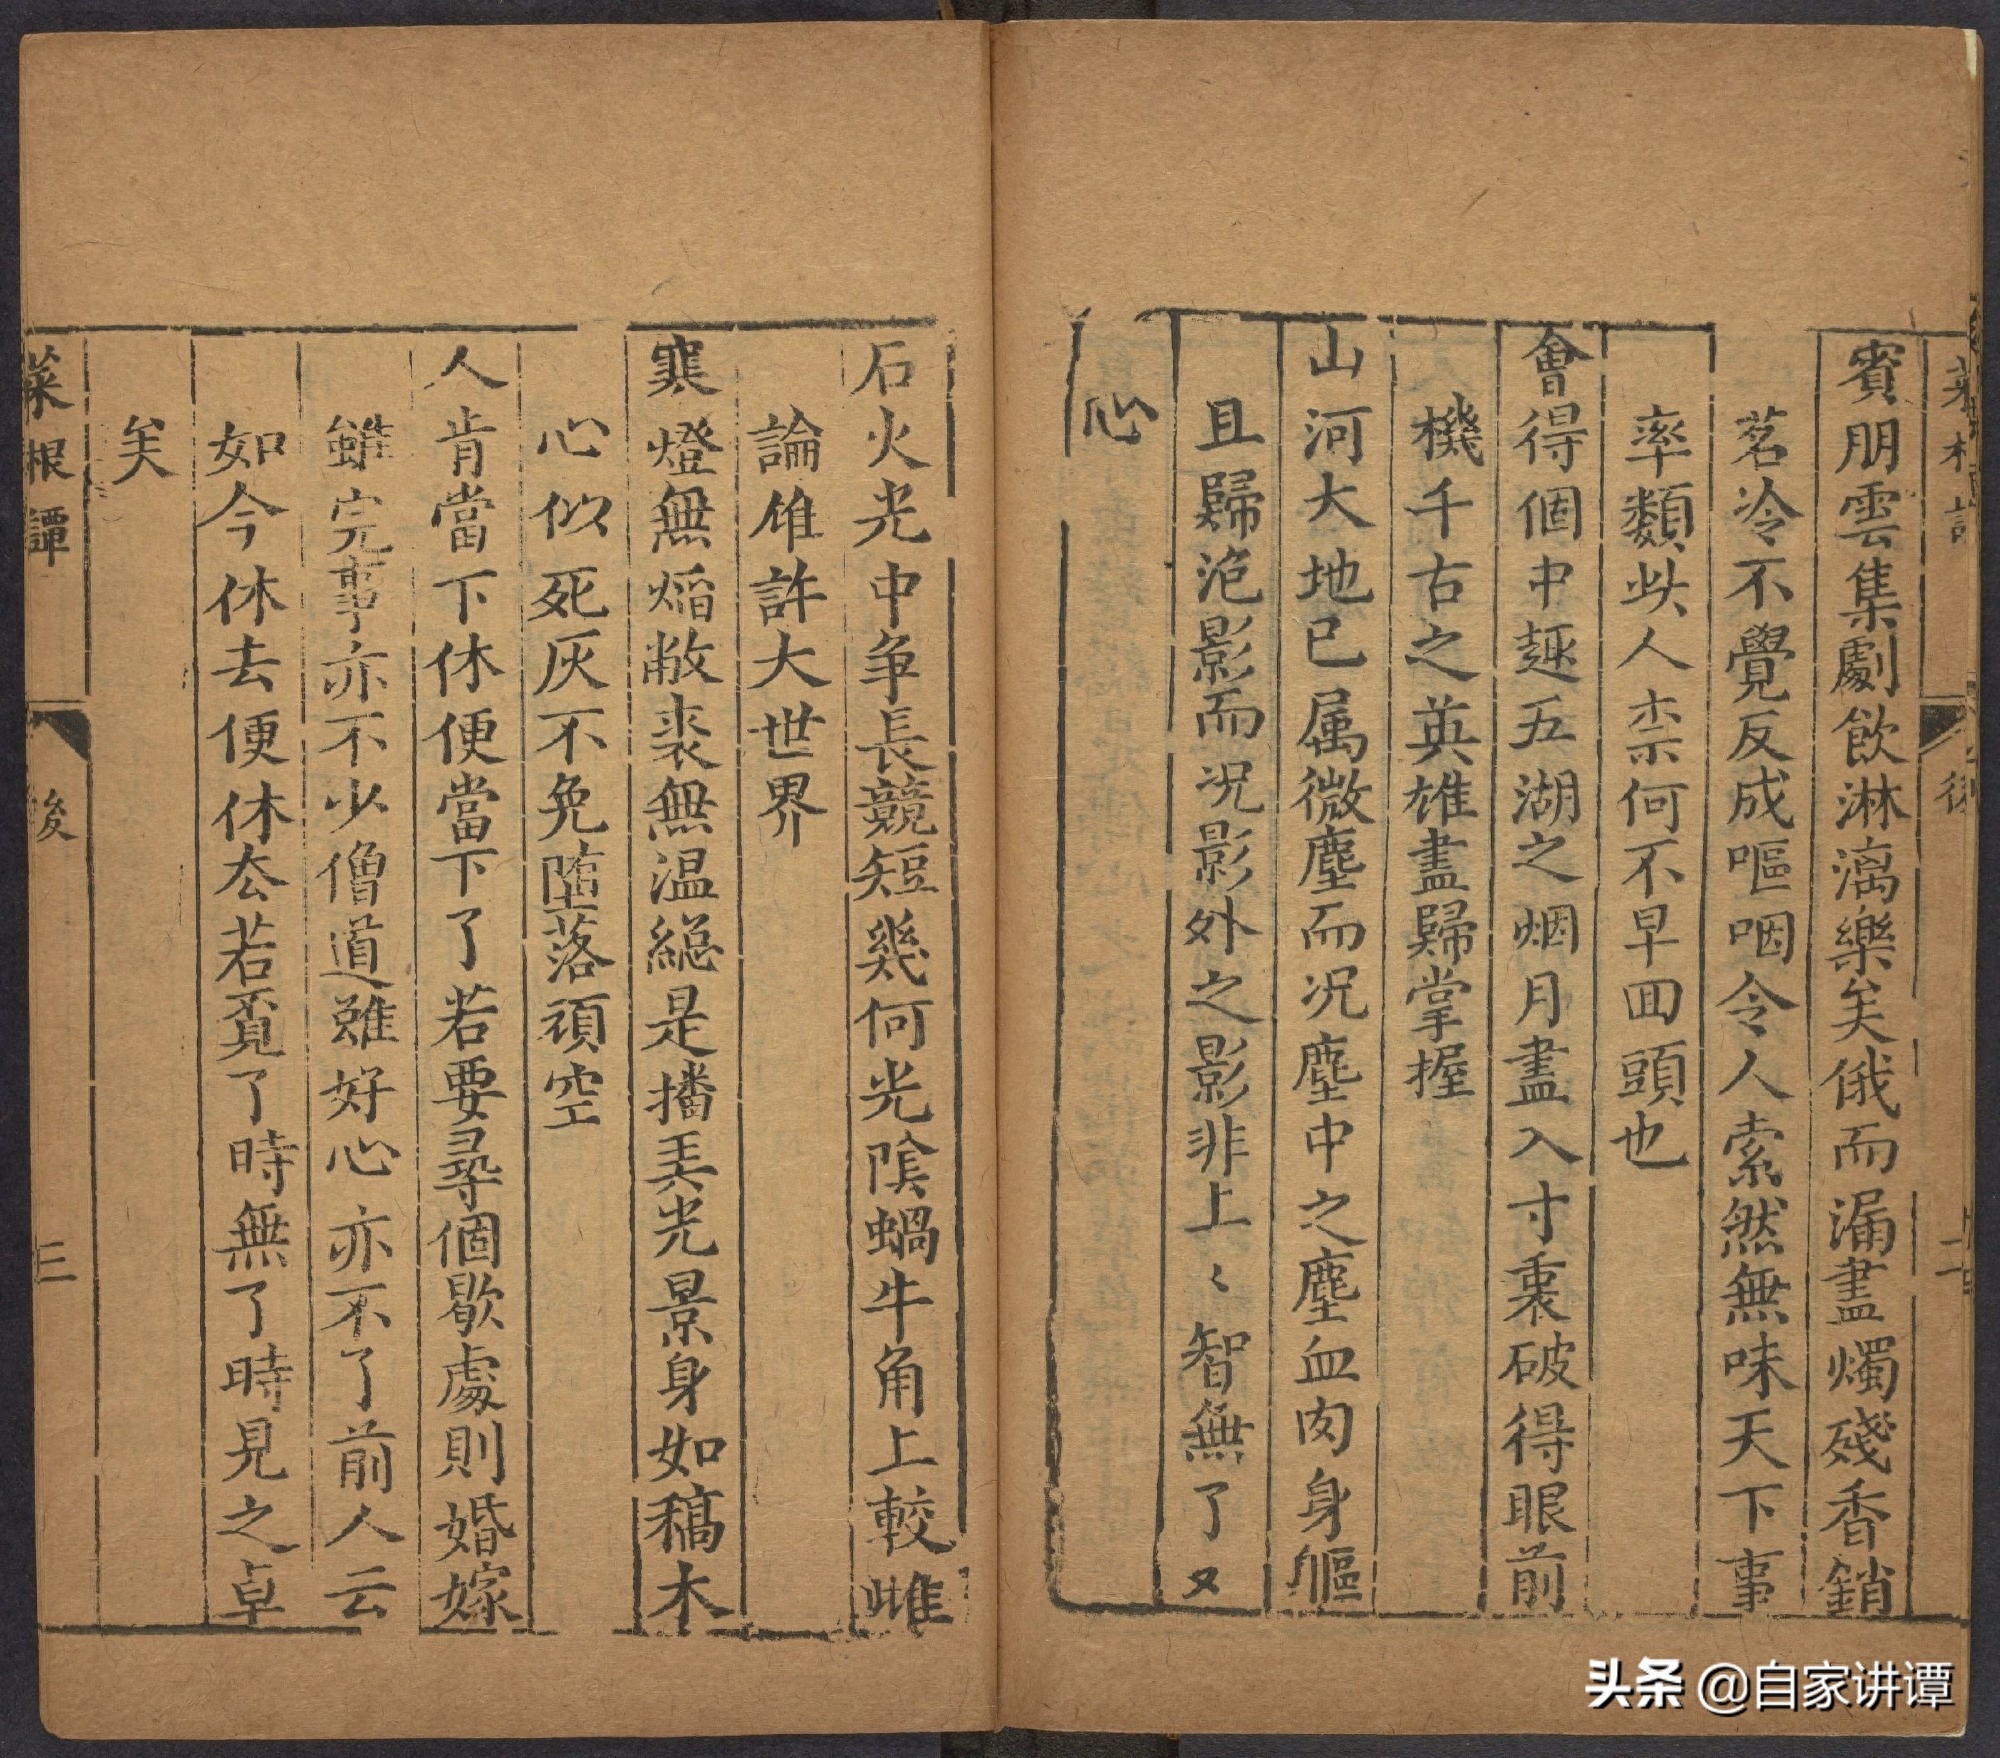 賓朋雲集劇飲淋漓樂矣俄而漏盡燭殘香銷
茗冷不覺反成嘔咽令人索然無味天下事
率類此人柰何不早回頭也
會得個中趣五湖之烟月盡入寸裏破得眼前
機千古之英雄盡歸掌握
山河大地已属微塵而况塵中之塵血肉身軀
且歸泡影而况影外之影非上〻智無了又
心
石火光中争長競短幾何光陰蝸牛角上較雌
論雄許大世界
寒燈無焰敝裘無温緫是播弄光景身如稿木
心似死灰不免墮落頑空
人肯當下休便當下了若要尋個歇處則婚嫁
雖完事亦不少僧道雖好心亦不了前人云
如今休去便休去若覔了時無了時見之卓
矣
菜根譚
後
三
头条 @自家讲谭